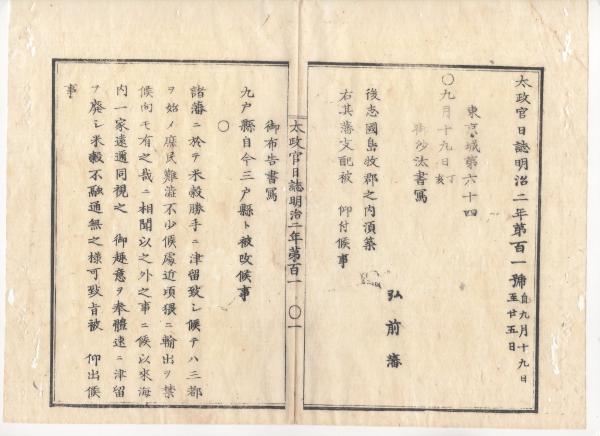 太政官日誌明治二年第百一號 自九月十九日至廿五日
東京城第六十四
〇九月十九日丁亥
御沙汰書寫
後志國島牧郡之内須築
右其藩支配被 仰付候事
弘前藩
太政官日誌明治二年第百一 〇一
御布告書寫
九戸縣自今三戸縣ト被改候事
〇
諸藩ニ於テ米穀勝手ニ津留致シ候テハ三都
ヲ始メ庶民難澁不少候處近頃猥ニ輸出ヲ禁
候向モ有之哉ニ相聞以之外之事ニ候以來海
内一家遠邇同視之 御趣意ヲ奉體速ニ津留
ヲ廢シ米穀不融通無之様可致旨被 仰出候
事